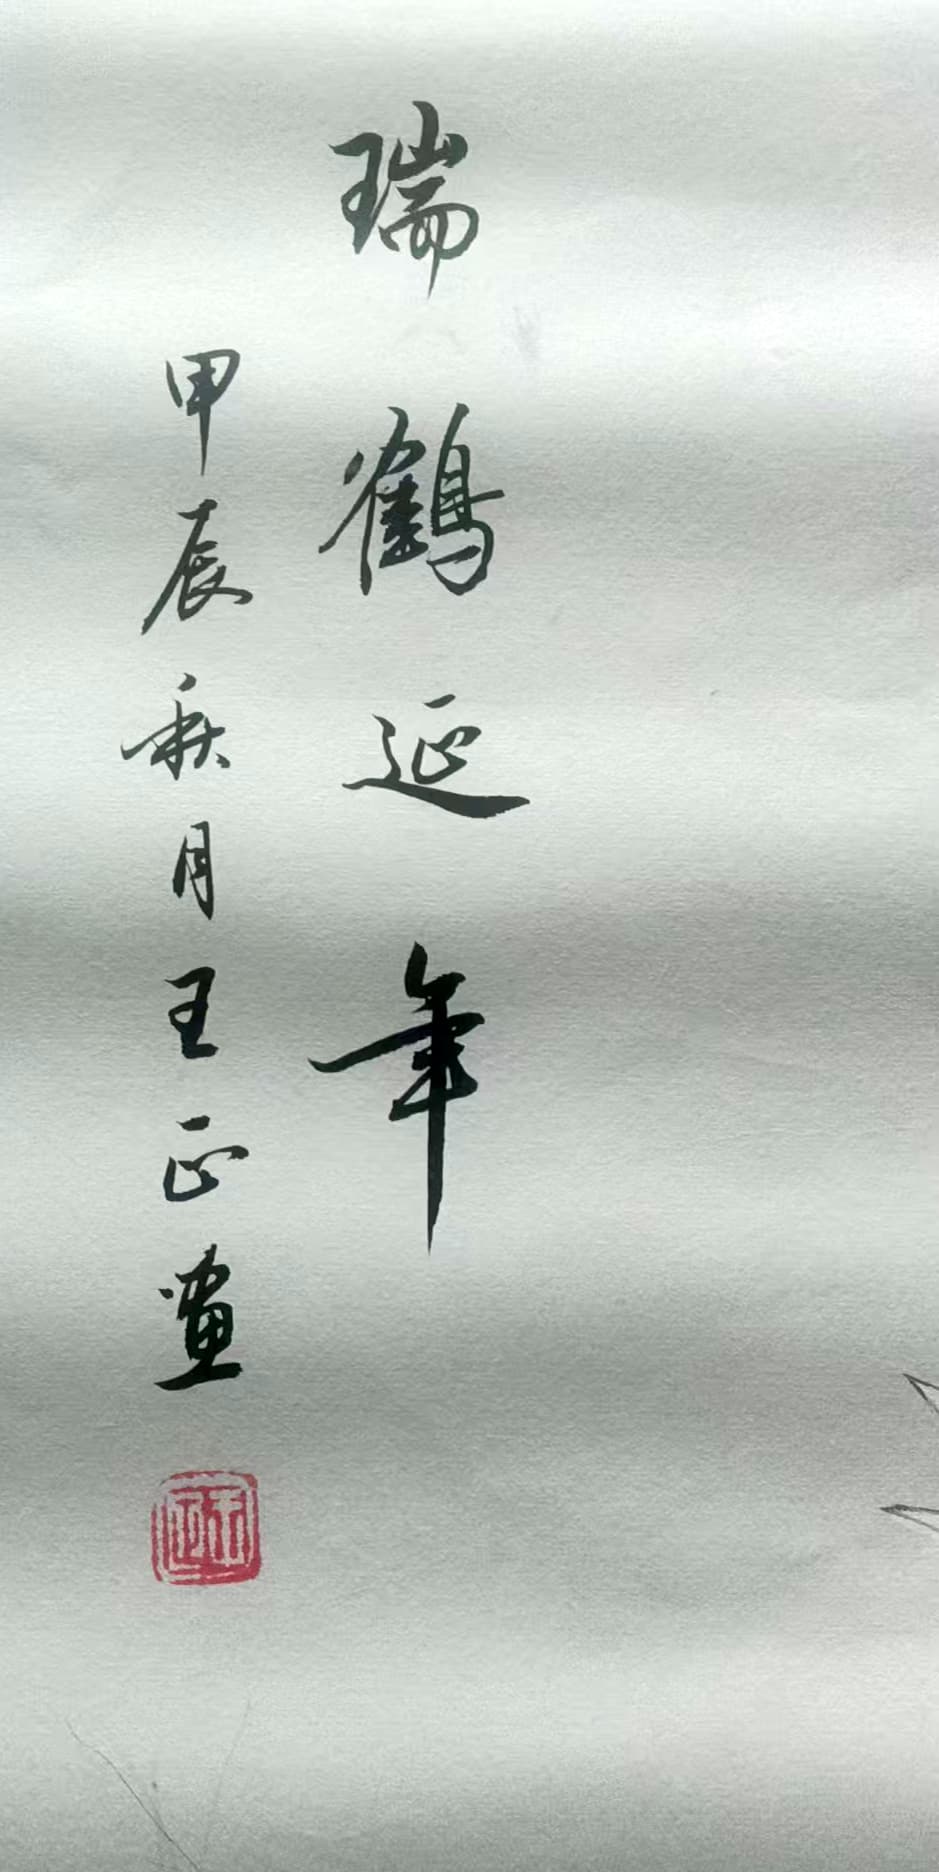 瑞鶴延年
甲辰秋月王正畫